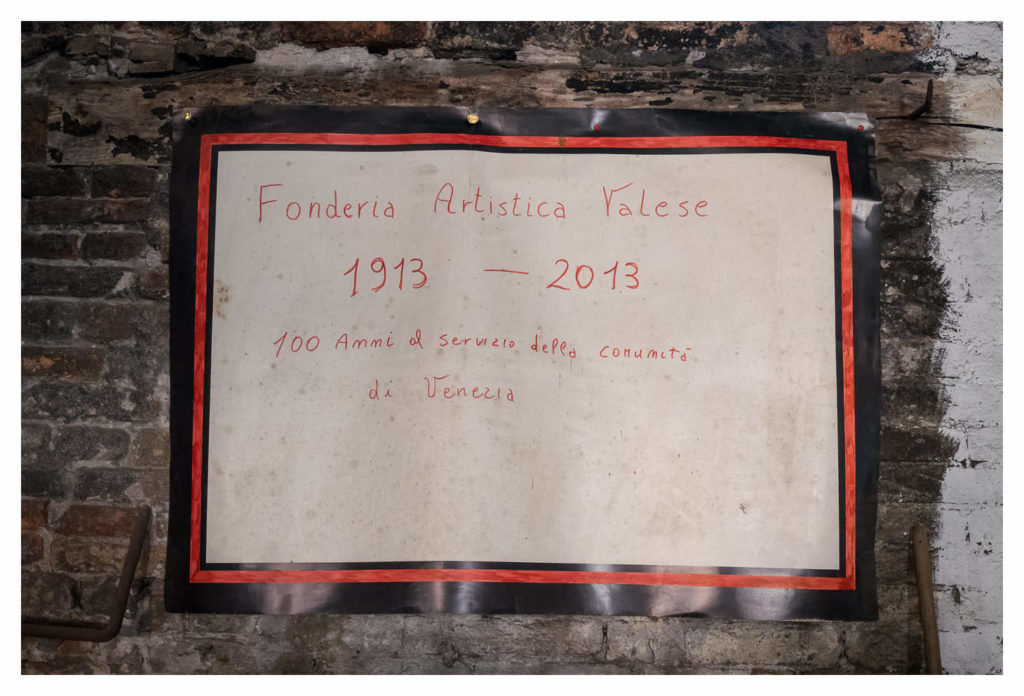 Fonderia Artistica Valese
1913 — 2013
100 Anni al servizio della comunità
di Venezia